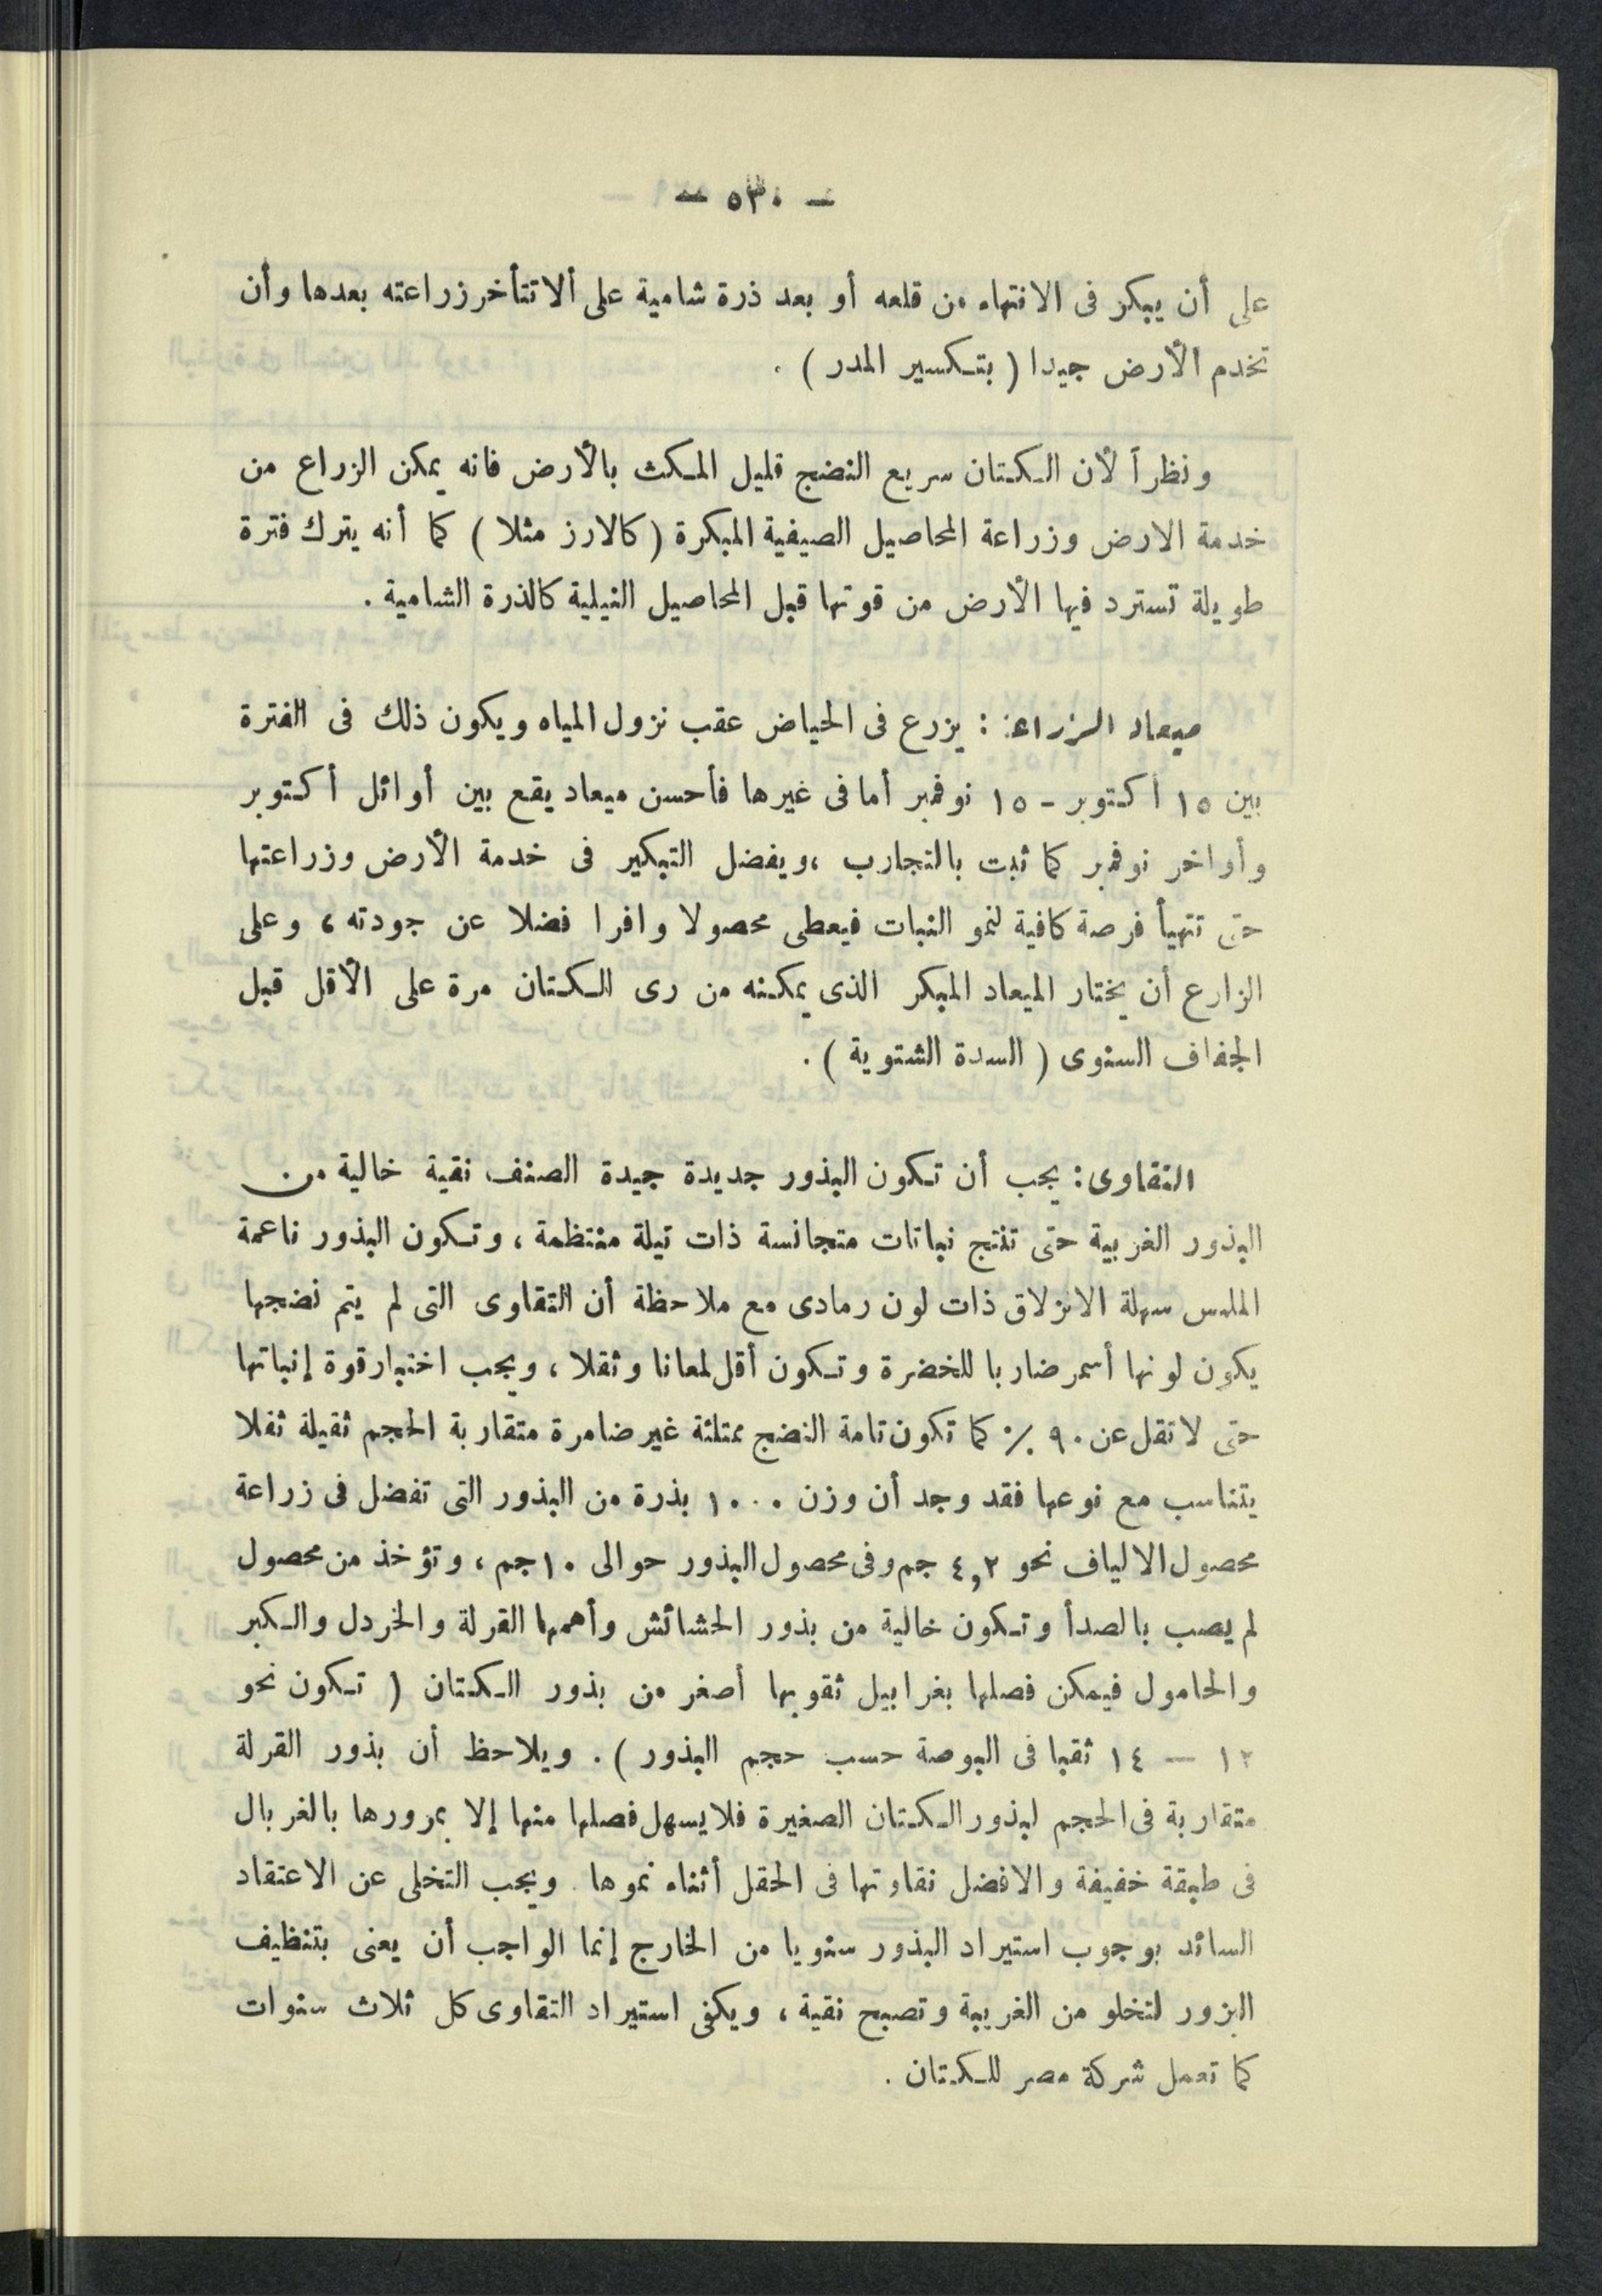 — ٥٣٠ —
على أن يبكر فى الانتهاء من قلعه أو بعد ذرة شامية على ألا تتأخر زراعته بعدها وأن
تخدم الأرض جيدا ( بتكسير المدر ) .
ونظراً لأن الكتان سريع النضج قليل المكث بالأرض فانه يمكن الزراع من
خدمة الارض وزراعة المحاصيل الصيفية المبكرة ( كالارز مثلا ) كما أنه يترك فترة
طويلة تسترد فيها الأرض من قوتها قبل المحاصيل النيلية كالذرة الشامية .
ميعاد الزراعة : يزرع فى الحياض عقب نزول المياه ويكون ذلك فى الفترة
بين ١٥ أكتوبر - ١٥ نوفمبر أما فى غيرها فأحسن ميعاد يقع بين أوائل أكتوبر
وأواخر نوفمبر كما ثبت بالتجارب ، ويفضل التبكير فى خدمة الأرض وزراعتها
حتى تتهيأ فرصة كافية لنمو النبات فيعطى محصولا وافرا فضلا عن جودته ، وعلى
الزارع أن يختار الميعاد المبكر الذى يمكنه من رى الكتان مرة على الأقل قبل
الجفاف السنوى ( السدة الشتوية ) .
التقاوى : يجب أن تكون البذور جديدة جيدة الصنف نقية خالية من
البذور الغريبة حتى تنتج نباتات متجانسة ذات تيلة منتظمة ، وتكون البذور ناعمة
الملمس سهلة الانزلاق ذات لون رمادى مع ملاحظة أن التقاوى التى لم يتم نضجها
يكون لونها أسمر ضاربا للخضرة وتكون أقل لمعانا وثقلا ، ويجب اختبار قوة إنباتها
حتى لا تقل عن ٩٠ ٪ كما تكون تامة النضج ممتلئة غير ضامرة متقاربة الحجم ثقيلة ثقلا
يتناسب مع نوعها فقد وجد أن وزن ١٠٠٠ بذرة من البذور التى تفضل فى زراعة
محصول الالياف نحو ٤,٢ جم وفى محصول البذور حوالى ١٠ جم ، وتؤخذ من محصول
لم يصب بالصدأ وتكون خالية من بذور الحشائش وأهمها القرلة والخردل والكبر
والحامول فيمكن فصلها بغرابيل ثقوبها أصغر من بذور الكتان ( تكون نحو
١٢ — ١٤ ثقبا فى البوصة حسب حجم البذور ) . ويلاحظ أن بذور القرلة
متقاربة فى الحجم لبذور الكتان الصغيرة فلا يسهل فصلها منها إلا بمرورها بالغربال
فى طبقة خفيفة والافضل نقاوتها فى الحقل أثناء نموها . ويجب التخلى عن الاعتقاد
السائد بوجوب استيراد البذور سنويا من الخارج إنما الواجب أن يعنى بتنظيف
البزور لتخلو من الغريبة وتصبح نقية ، ويكفى استيراد التقاوى كل ثلاث سنوات
كما تعمل شركة مصر للكتان .